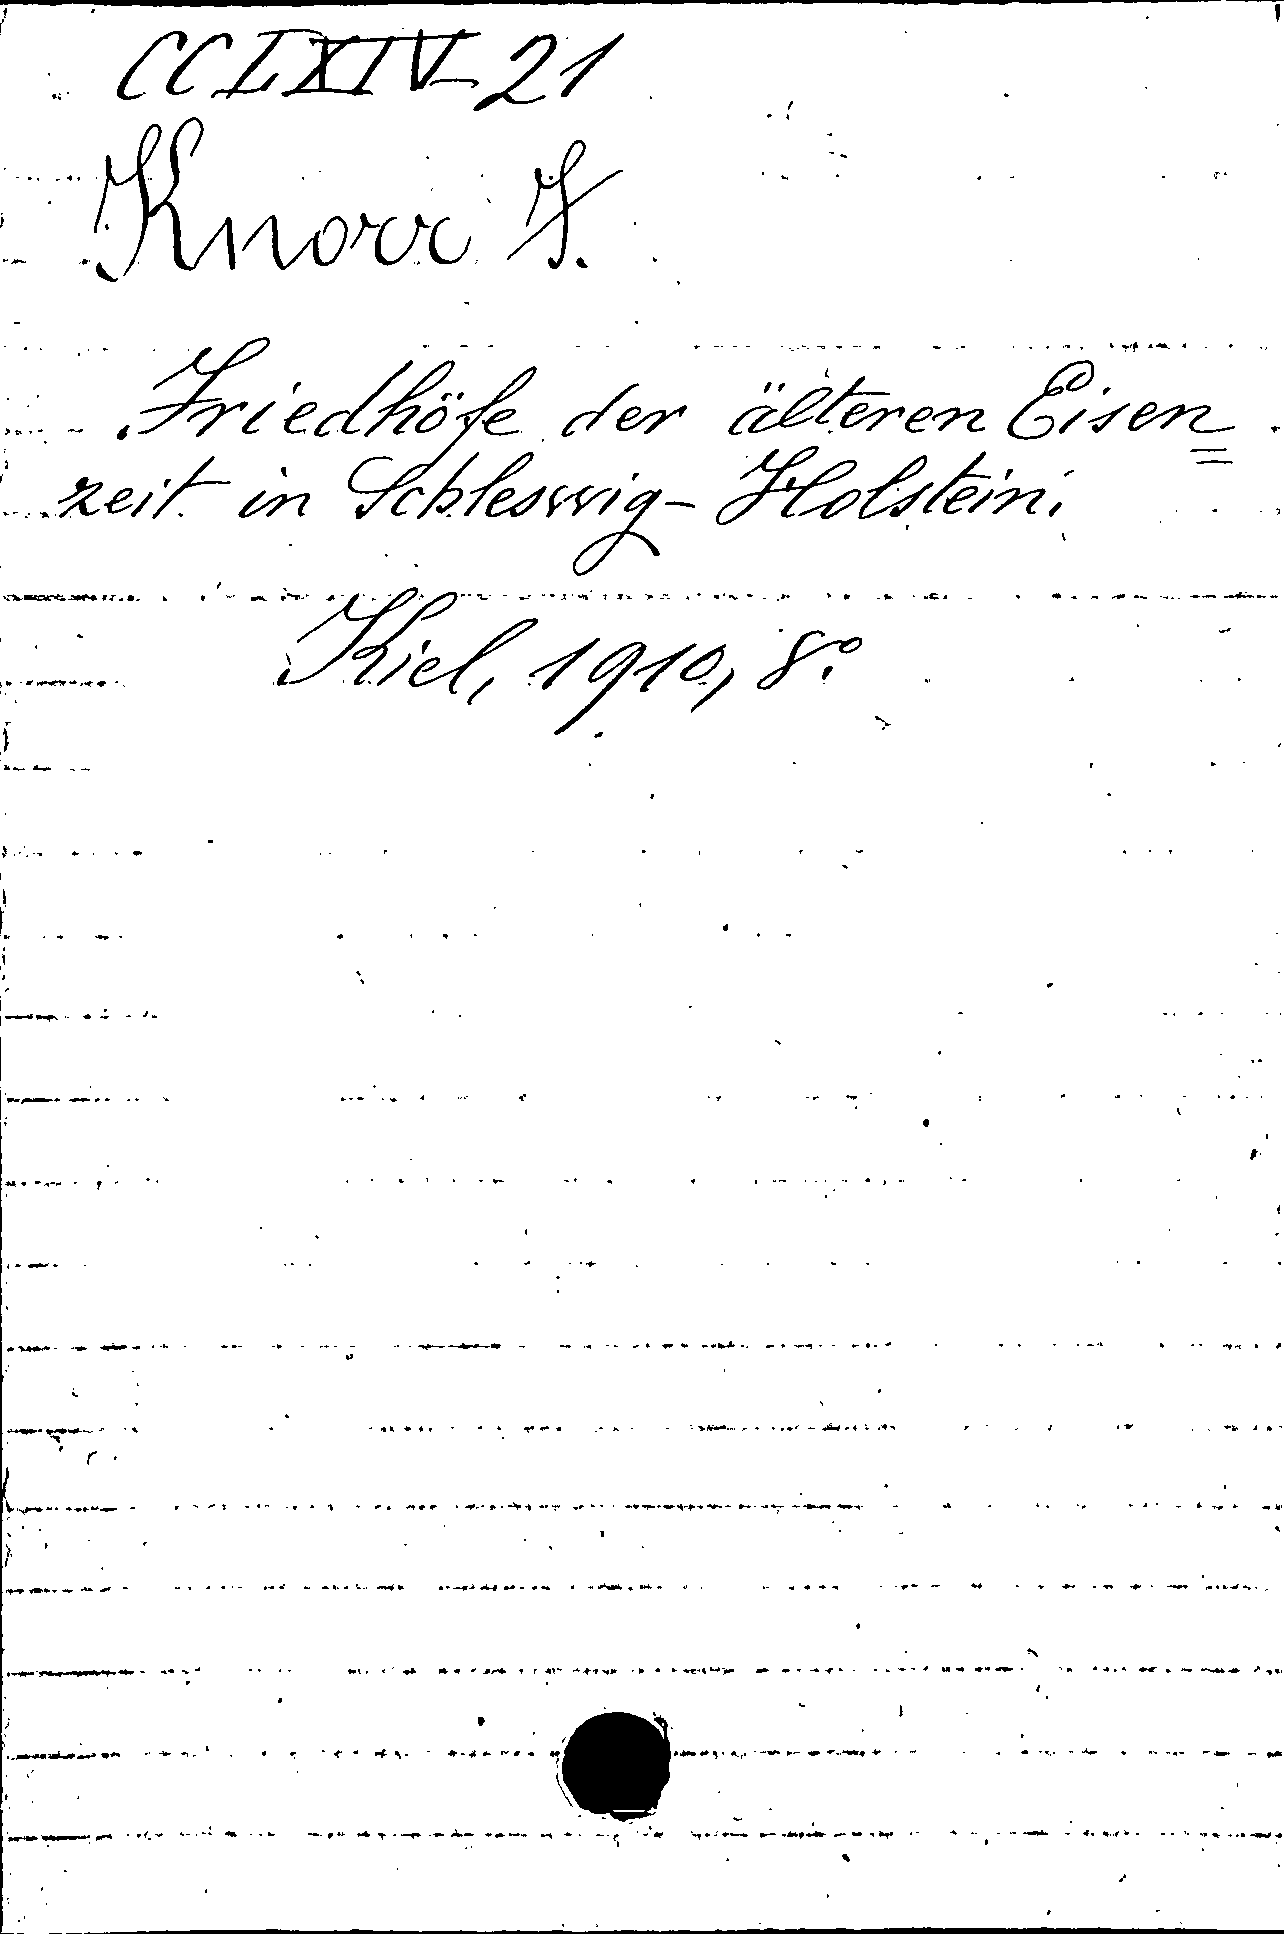 CCLXIV 21
Knorr F.
Friedhöfe der älteren Eisen=
zeit in Schleswig-Holstein.
Kiel, 1910, 8°